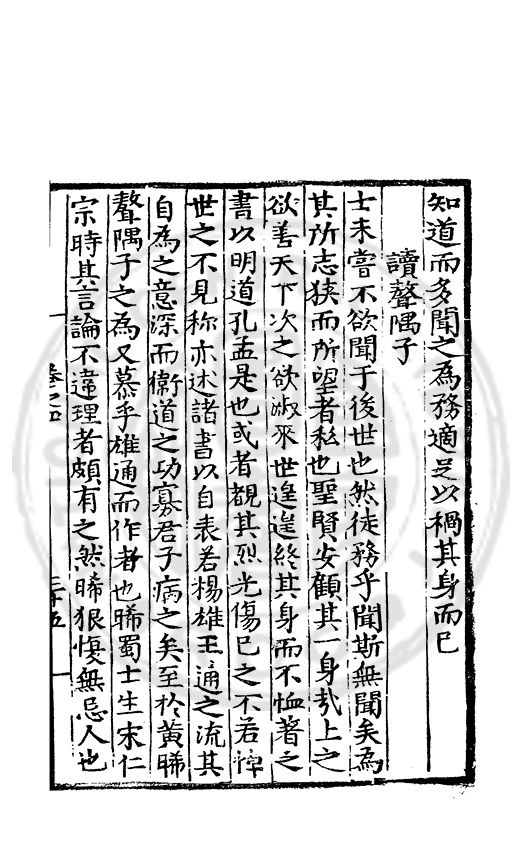 知道而多聞之為務適足以禍其身而已
讀聱隅子
士未嘗不欲聞于後世也然徒務乎聞斯無聞矣為
其所志狭而所望者私也聖賢安顧其一身㢤上之
欲善天下次之欲淑來世遑遑終其身而不恤著之
書以明道孔孟是也或者覩其烈光傷已之不若悼
世之不見称亦述諸書以自表若楊雄王通之流其
自為之意深而衛道之功寡君子病之矣至於黄晞
聱隅子之為又慕乎雄通而作者也晞蜀士生宋仁
宗時其言論不違理者頗有之然晞狠愎無忌人也
卷之四
三十五